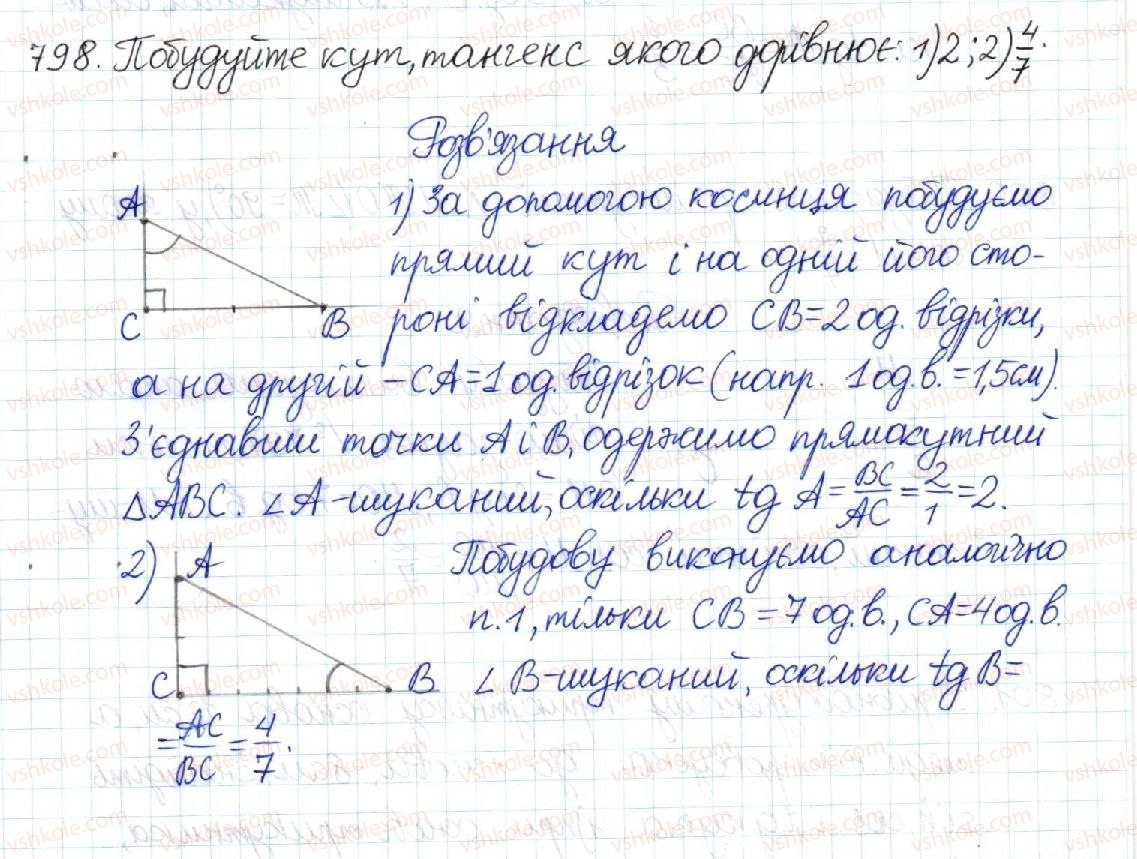 798. Побудуйте кут, тангенс якого дорівнює: 1) 2; 2) 4/7.
Розв'язання
A
C
B
1) За допомогою косинця побудуємо
прямий кут і на одній його сто-
роні відкладемо CB=2 од. відрізки,
а на другій – CA=1 од. відрізок (напр. 1 од. в. = 1,5 см).
З'єднавши точки A і B, одержимо прямокутний
△ABC. ∠A – шуканий, оскільки tg A = BC/AC = 2/1 = 2.
2)
A
C
B
Побудову виконуємо аналогічно
п. 1, тільки CB = 7 од. в., CA = 4 од. в.
∠B – шуканий, оскільки tg B =
= AC/BC = 4/7.